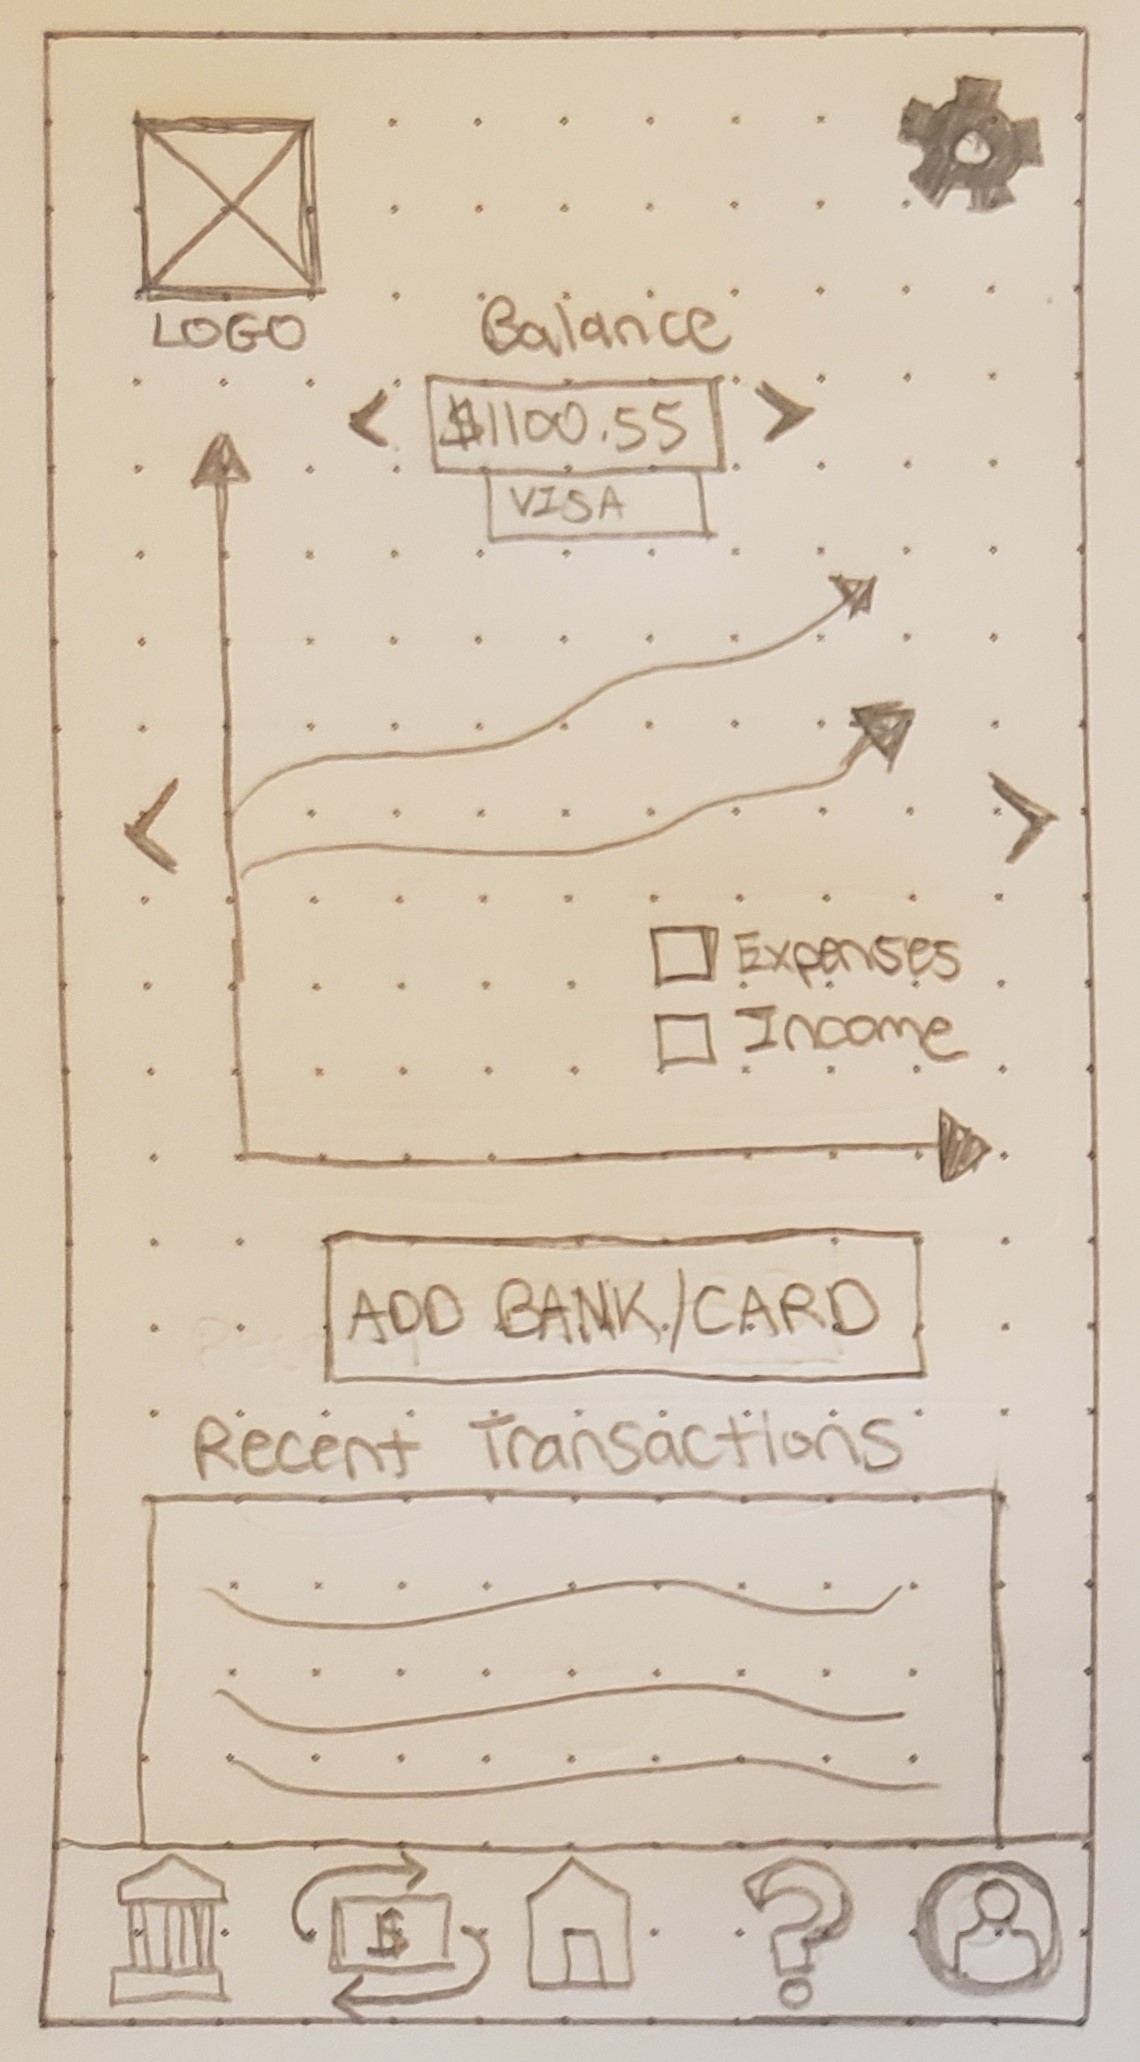 LOGO
Balance
$1100.55
VISA
Expenses
Income
ADD BANK/CARD
Recent Transactions
$
?